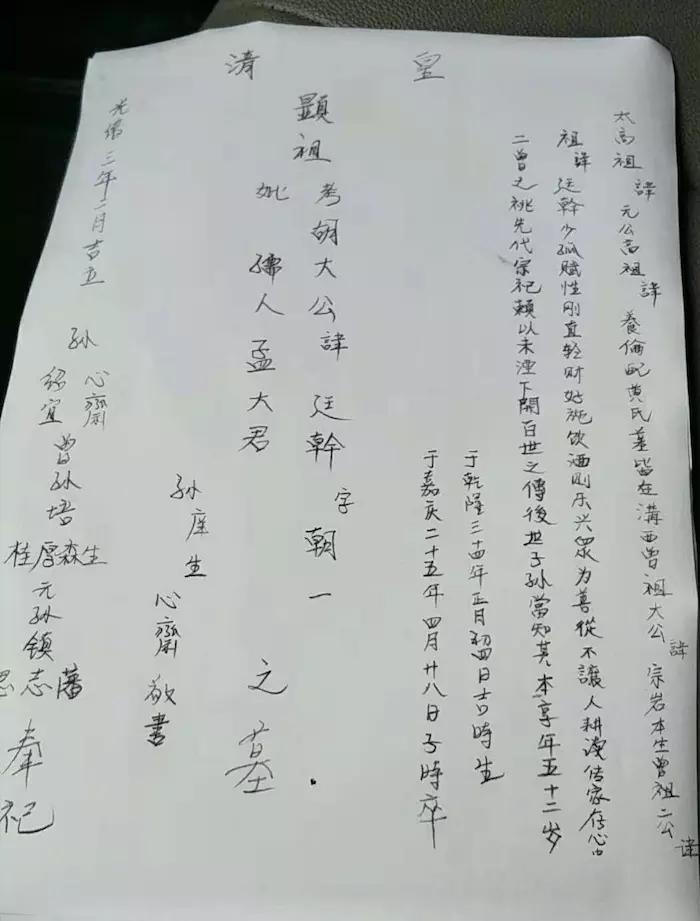 皇清
太高祖諱元公高祖諱養倫配黄氏墓皆在溝西曾祖大公諱宗岩本生曾祖二公諱
祖諱廷幹少孤赋性刚直轻财好施饮酒则乐兴眾为善從不讓人耕读传家存心
二曾之祧先代宗祀賴以未湮下開百世之傳後世子孫當知其本享年五十二岁
于乾隆三十四年正月初四日吉時生
于嘉庆二十五年四月廿八日子時卒
顯祖考胡大公諱廷幹字朝一
妣孺人孟大君之墓
孙庭生心齋敬書
孙心齋绍宜曾孙培生森厚桂元孙镇藩志恩奉祀
光绪三年二月吉立